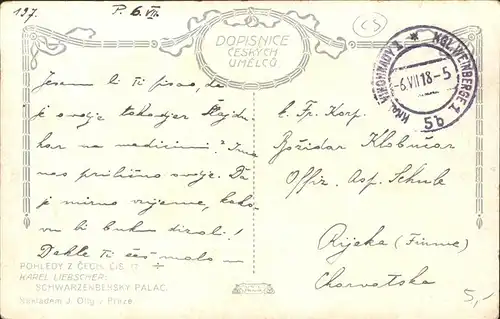 197.
P. 6. VII.
CS
DOPISNICE
ČESKÝCH
UMĚLCŮ
KRÁL. VINOHRADY 1 * KGL. WEINBERGE 1
-6.VII 18-5
5b
Jesam li ti pisao, da
je ovdje također Hajdu-
kar na medicini? Ima
nas prilično ovdje. Da
je mirno vrijeme, kako
vu bi buku dizali!
Dakle Ti ćeš malo —
Fr. Korp.
Božidar Klobučar
Offiz. Asp. Schule
Rijeka (Fiume)
Chorvatska
POHLEDY Z ČECH. ČÍS. 17.
KAREL LIEBSCHER:
SCHWARZENBERSKÝ PALÁC.
Nákladem J. Otty v Praze.
5,-